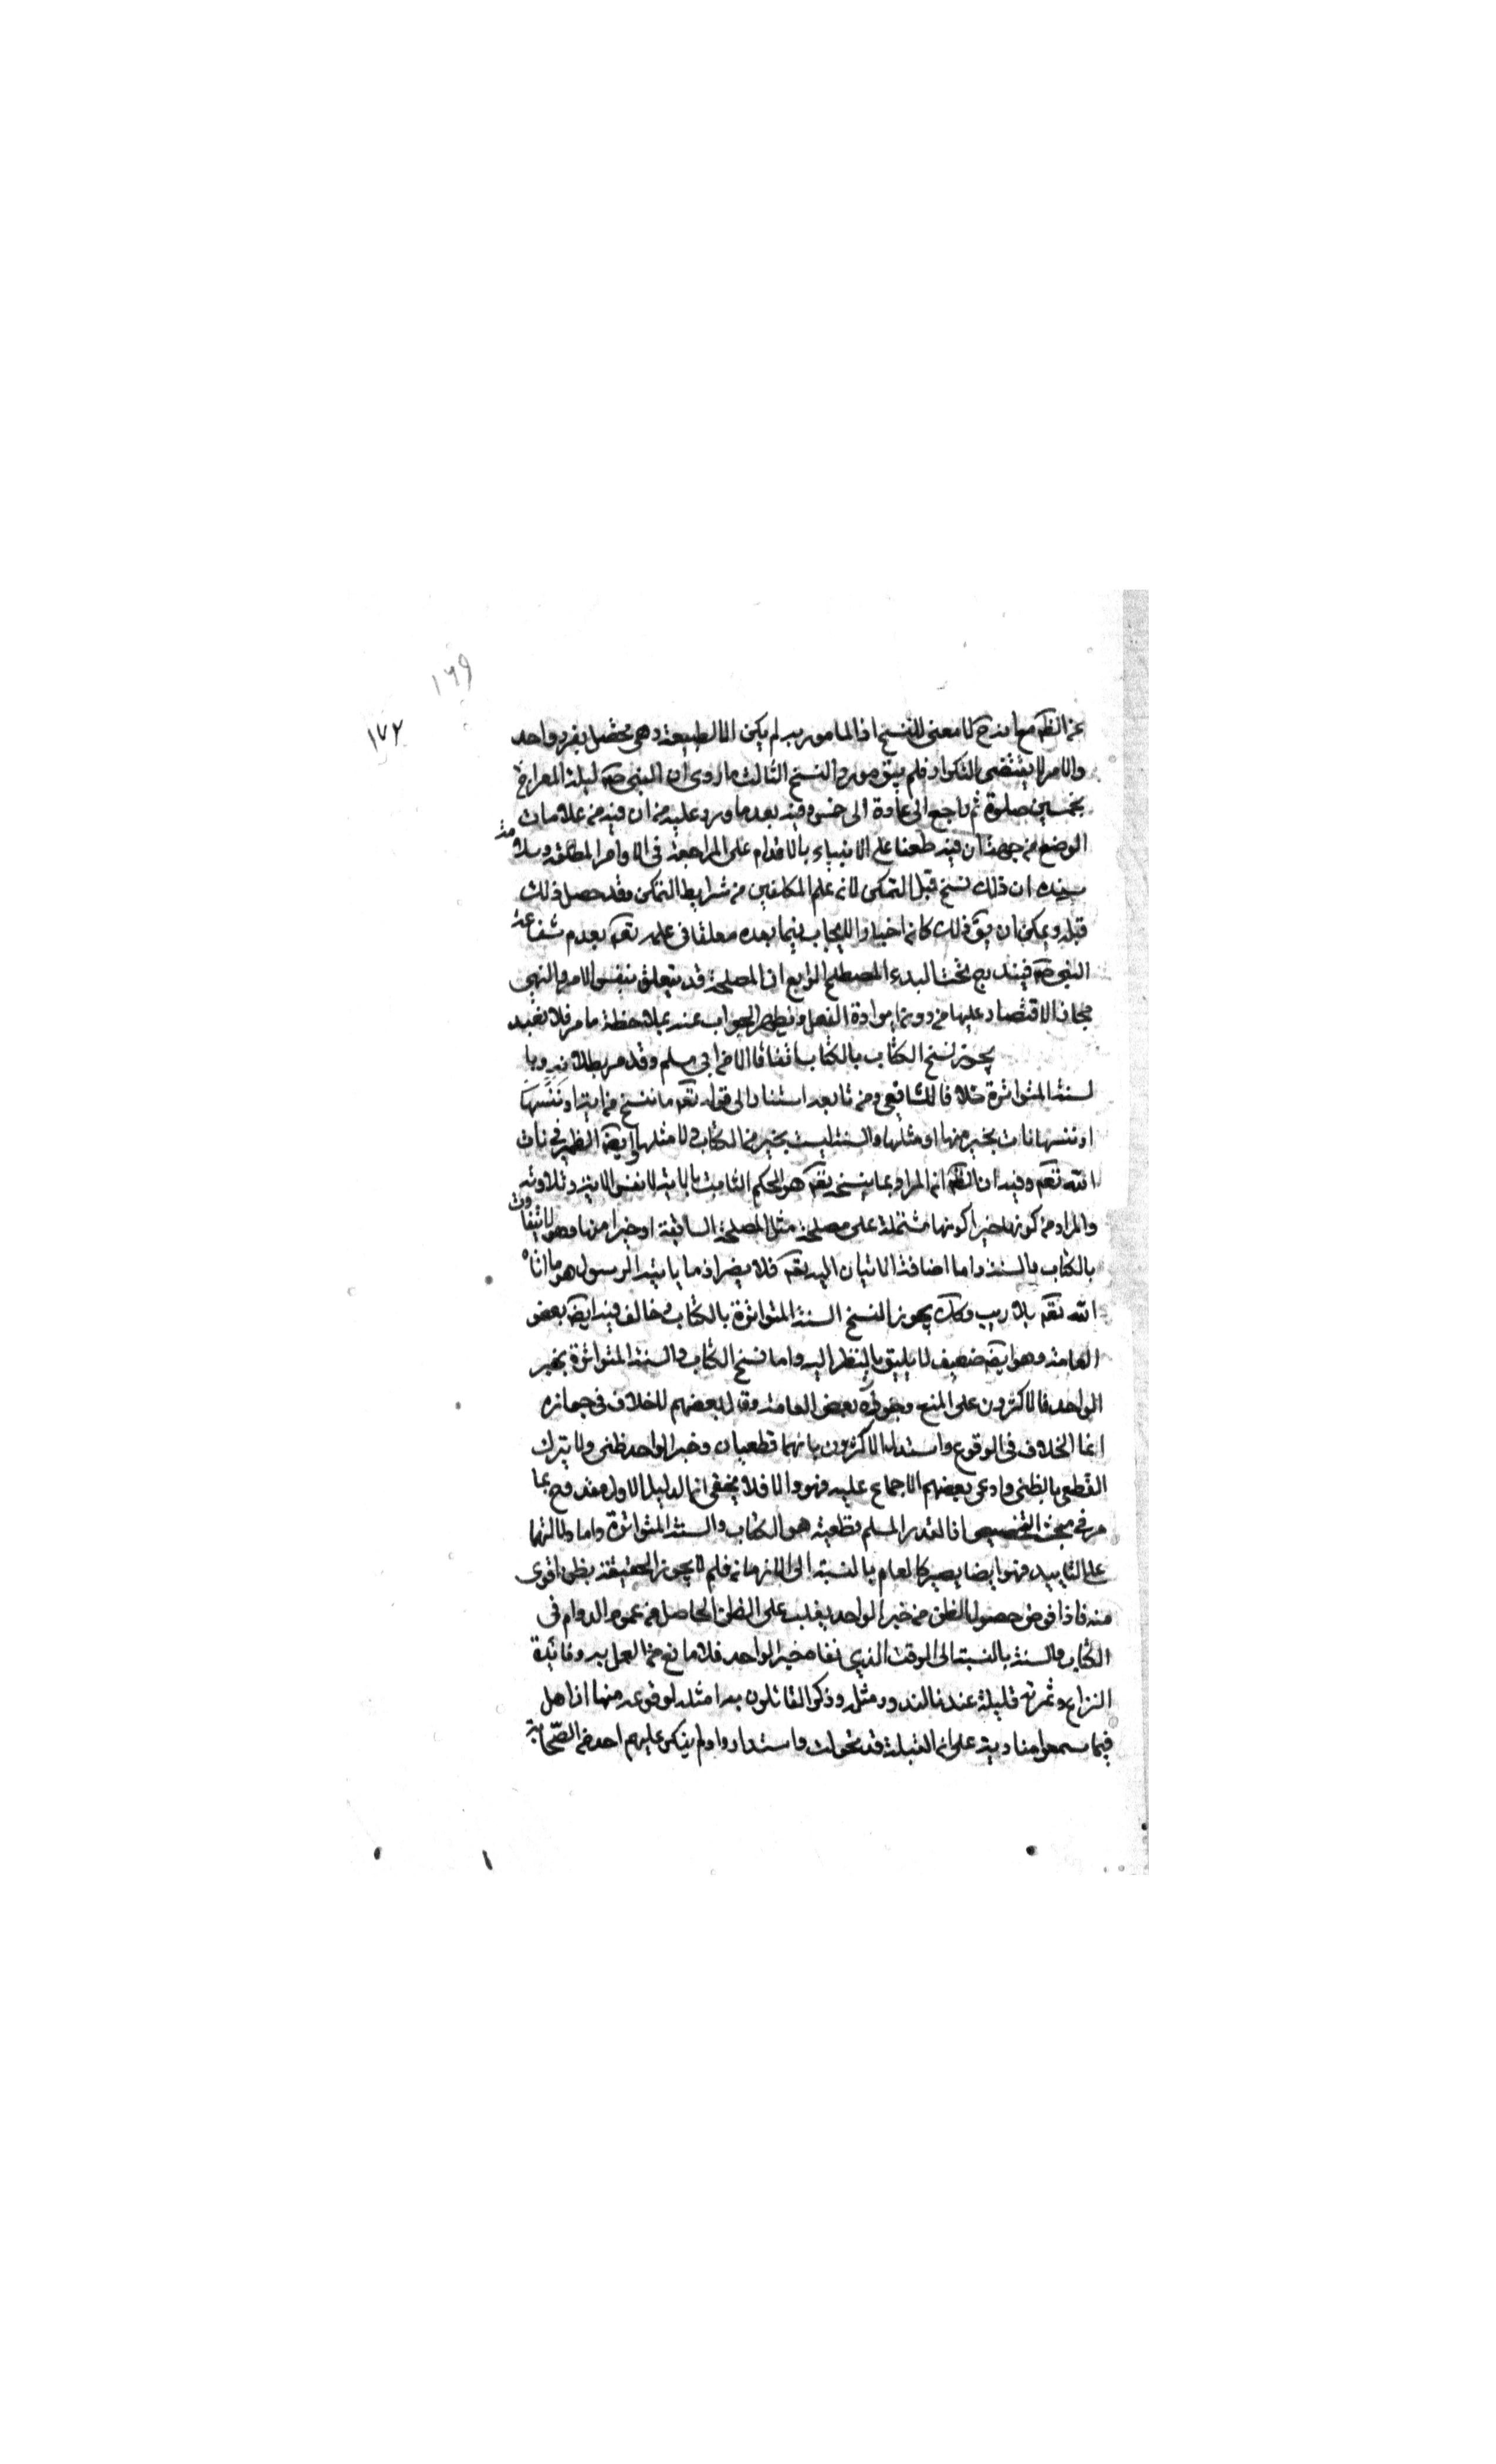 ١٦٩
١٧٢
عن الظم مع انه ح لا معنى للنسخ اذ المامور به لم يكن الا الطبيعة وهى تحصل بفرد واحد
والامر لا يقتضى التكرار فلم يبق مورد النسخ الثالث ما روى ان النبى صم ليلة المعراج
بخمسين صلوة ثم راجع الى عادة الى خمس وفيه بعد ما ورد عليه من ان فيه من علامات
الوضع من جهة ان فيه طعنا على الانبياء بالاقدام على المراجعة فى الاوامر المطلقة وسلامة
سنده ان ذلك نسخ قبل التمكن لانه علم المكلفين من شرايط التمكن وقد حصل ذلك
قبله ويمكن ان يق ذلك كان اخبارا لايجاب فيما بعده معلقا فى علمه تعم بعدم شفاعة
النبى صم فيندرج تحت البدء المصطلح الرابع ان المصلحة قد يتعلق بنفس الامر والنهى
فجاز الاقتصار عليها من دون ارادة الفعل ويظهر الجواب عنه بملاحظة ما مر فلا نعيد
يجوز نسخ الكتاب بالكتاب اتفاقا الا من ابى مسلم وقد مر بطلانه وبا
لسنة المتواترة خلافا للشافعى ومن تابعه استنادا الى قوله تعم ما ننسخ من اية او ننسها
او ننسها نات بخير منها او مثلها والسنة ليست بخير من الكتاب ولا مثلها وايضا الضمير فى نات
الله تعم وفيه ان الظم ان المراد بما ينسخ تعم هو الحكم الثابت بالاية لا نفس الاية وتلاوته
والمراد من كونها خيرا كونها مشتملة على مصلحة مثل المصلحة السابقة او خيرا منها وهو لا يتفاوت
بالكتاب والسنة واما اضافة الاتيان اليه تعم فلا يضر اذ ما ياتيه الرسول هو ما اتاه
الله تعم بلا ريب وكك يجوز النسخ السنة المتواترة بالكتاب وخالف فيه ايضا بعض
العامة وهو ايضا ضعيف لا يليق بالنظر اليه واما نسخ الكتاب والسنة المتواترة بخبر
الواحد فالاكثرون على المنع وجوزه بعض العامة وقال بعضهم للخلاف فى جوازه
انما الخلاف فى الوقوع واستدل الاكثرون بانهما قطعيان وخبر الواحد ظنى ولا يترك
القطعى بالظنى وادعى بعضهم الاجماع عليه فهو والا فلا يخفى ان الدليل الاول مندفع بما
مر فى مبحث التخصيص اذ القدر المسلم قطعية هو الكتاب والسنة المتواترة واما دلالتهما
على التابيد فهو ايضا يصير كالعام بالنسبة الى الازمان فلم لا يجوز الحقيقة بظن اقوى
منه فاذا فرض حصول الظن من خبر الواحد يغلب على الظن الحاصل من عموم الدوام فى
الكتاب والسنة بالنسبة الى الوقت الذى نفاه خبر الواحد فلا مانع من العمل به وفايدة
النزاع وثمرته قليلة عندنا لندور مثله وذكر القائلون به امثلة لوقوعه منها ان اهل
قبا سمعوا مناديه على ان القبلة قد تحولت واستداروا ولم ينكر عليهم احد من الصحابة